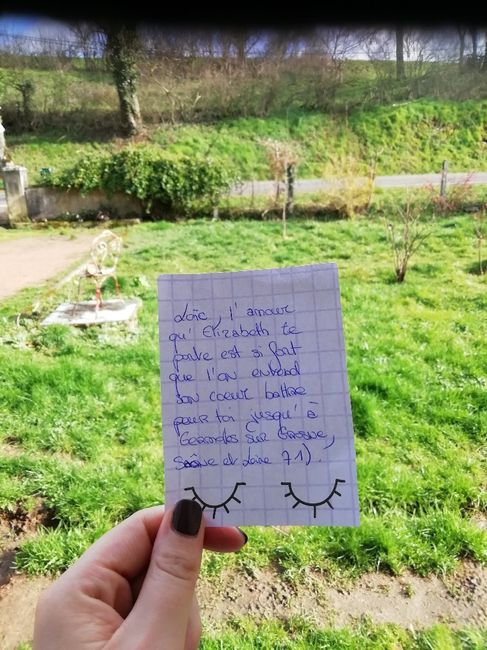 Loïc, l'amour
qu'Elizabeth te
porte est si fort
que l'on entend
son coeur battre
pour toi jusqu'à
Germolles Sur Grosne,
Saône et Loire 71).